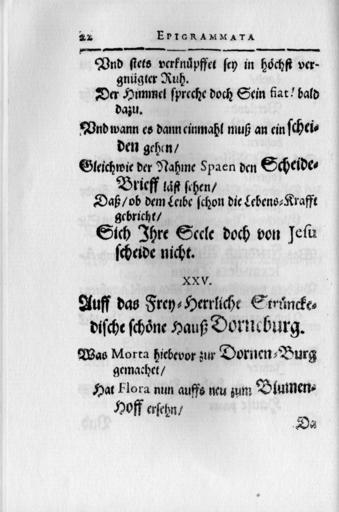 22 EPIGRAMMATA
Vnd stets verknüpffet sey in höchst ver-
gnügter Ruh.
Der Himmel spreche doch Sein fiat! bald
dazu.
Vnd wann es dann einmahl muß an ein schei-
den gehen/
Gleichwie der Nahme Spaen den Scheide-
Brieff läst sehen/
Daß/ ob dem Leibe schon die Lebens-Krafft
gebricht/
Sich Ihre Seele doch von Jesu
scheide nicht.
XXV.
Auff das Frey-Herrliche Strüncke-
dische schöne Hauß Dorneburg.
Was Morta hiebevor zur Dornen-Burg
gemachet/
Hat Flora nun auffs neu zum Blumen-
Hoff ersehn/
Da